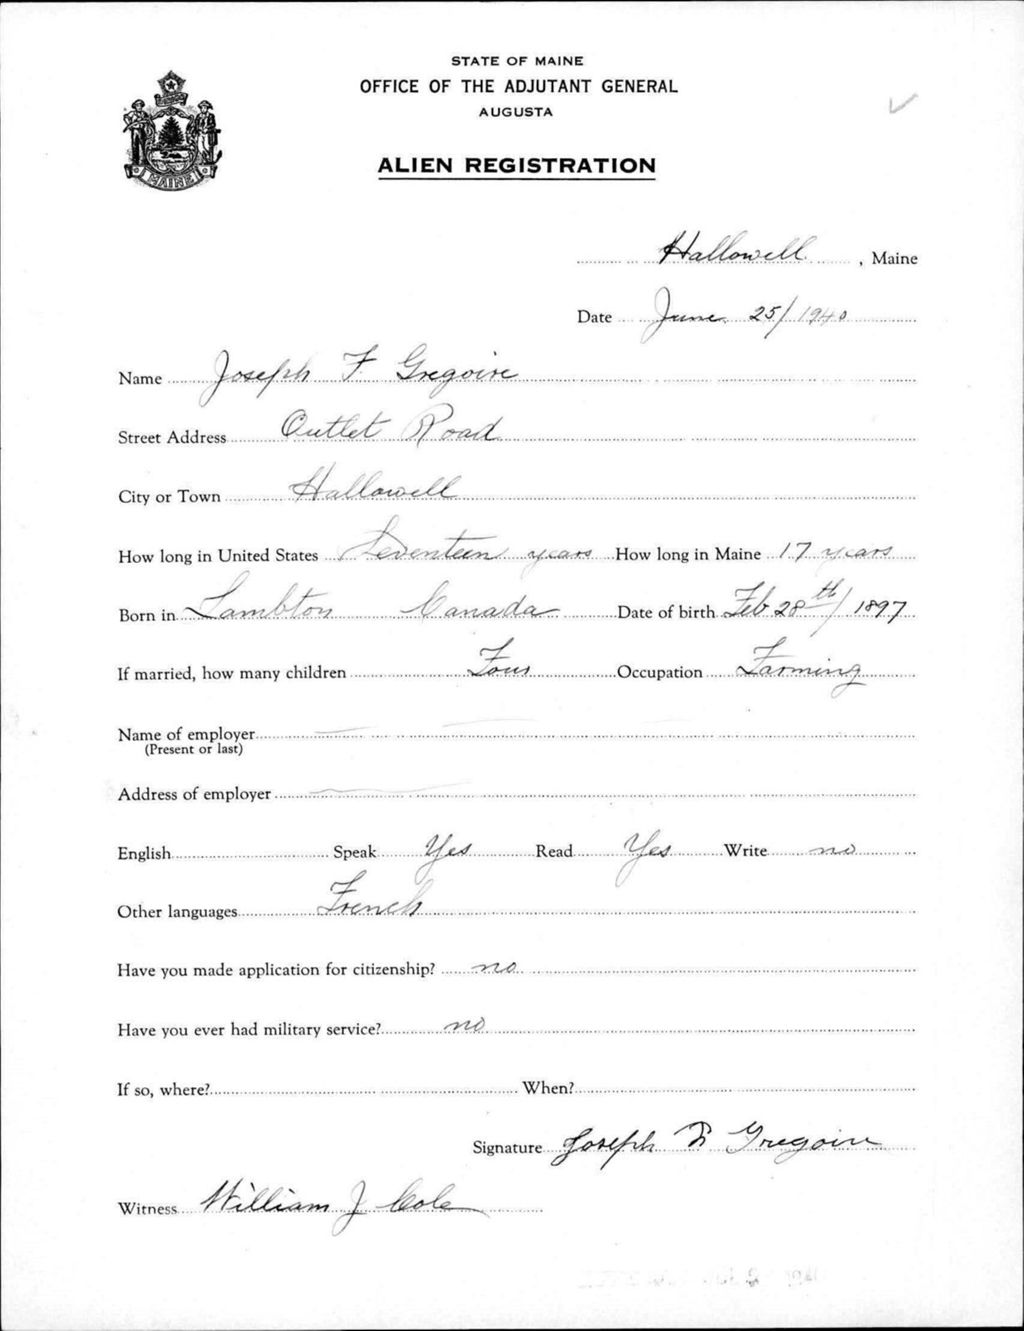 STATE OF MAINE
OFFICE OF THE ADJUTANT GENERAL
AUGUSTA
ALIEN REGISTRATION
MAINE
Hallowell, Maine
Date June 25/1940
Name Joseph F Gregoire
Street Address Outlet Road
City or Town Hallowell
How long in United States Seventeen years How long in Maine 17 years
Born in Lambton Canada Date of birth Feb 28th/1897
If married, how many children Four Occupation Farming
Name of employer
(Present or last)
Address of employer
English Speak Yes Read Yes Write no
Other languages French
Have you made application for citizenship? no
Have you ever had military service? no
If so, where? When?
Signature Joseph F Gregoire
Witness William J Cole